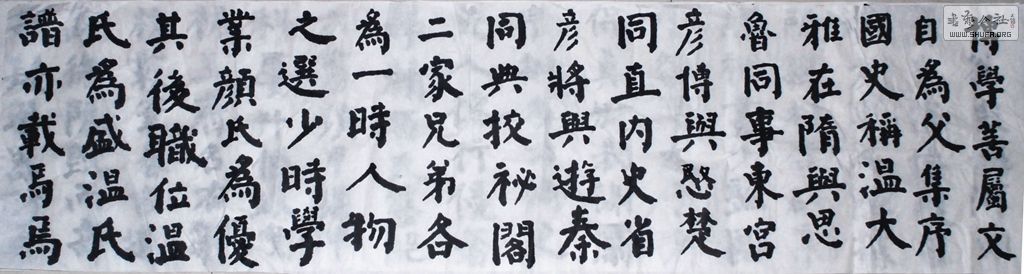 博學善屬文
自為父集序
國史稱溫大
雅在隋與思
魯同事東宮
彥博與愍楚
同直內史省
彥將與遊秦
同典校祕閣
二家兄弟各
為一時人物
之選少時學
業顏氏為優
其後職位溫
氏為盛溫氏
譜亦載焉焉
书法公社
WWW.SHUFA.ORG